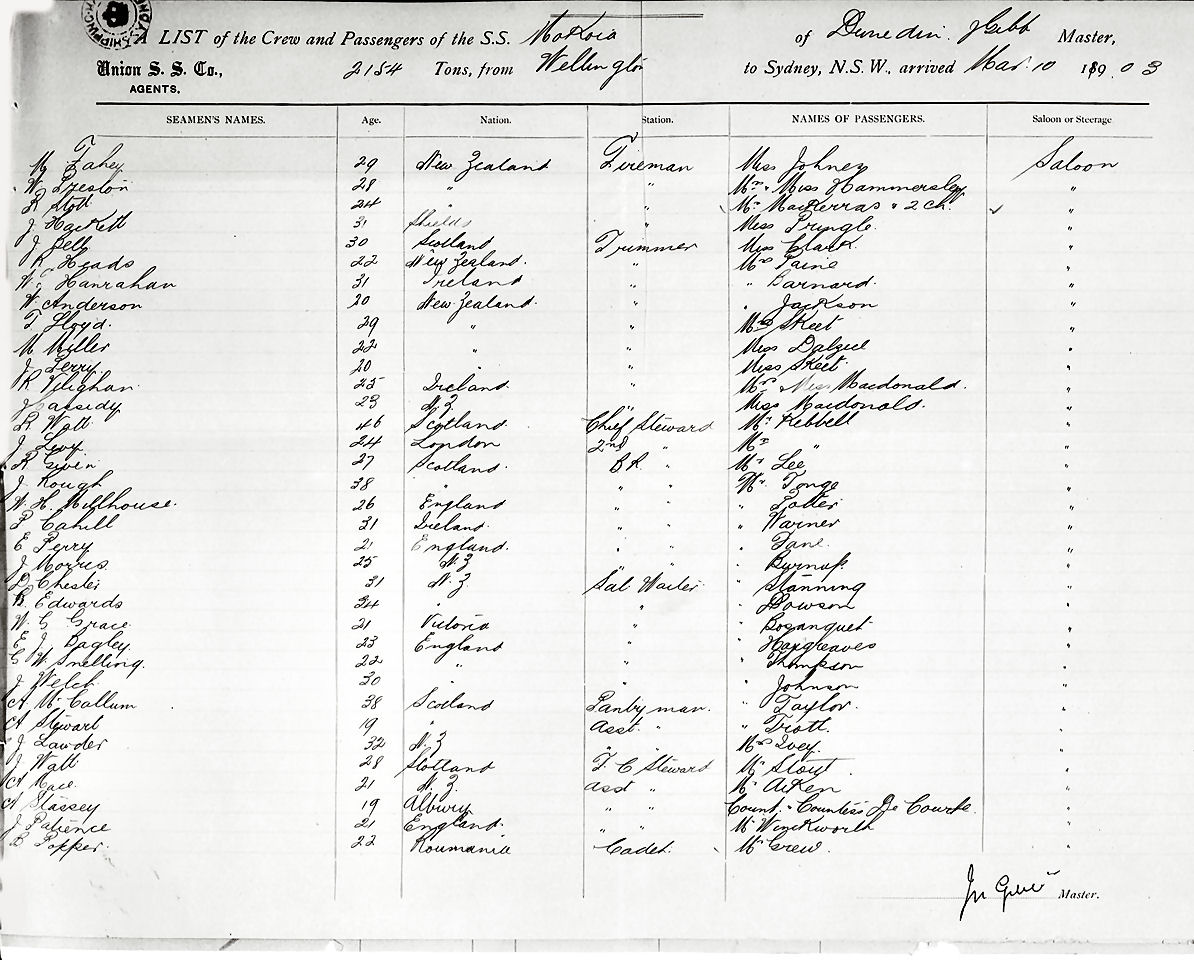 A LIST of the Crew and Passengers of the S.S. Mokoia of Dunedin. J Gibb Master,
Union S. S. Co., 2154 Tons, from Wellington to Sydney, N.S.W., arrived Mar. 10 1890 3
AGENTS.
SEAMEN'S NAMES. Age. Nation. Station. NAMES OF PASSENGERS. Saloon or Steerage
M Fahey 29 New Zealand Fireman Miss Johney Saloon
W Preston 28 " " Mrs " Miss Hammersley "
R Stott 24 " " Mrs MacKerras " 2 ch. "
J Hackett 31 Shields " Miss Pringle "
J Bell 30 Scotland Trimmer Miss Clark "
R Heads 22 New Zealand. " Mrs Paine "
W Hanrahan 31 Ireland " " Barnard. "
W Anderson 20 New Zealand. " " Jackson "
T Lloyd. 29 " " Mrs Skeet "
M Miller 22 " " Miss Dalziel "
J Terry 20 " " Miss Skeet "
R Vilighan 25 Ireland " Mrs Miss Macdonald. "
J Cassidy 23 N.Z " Miss Macdonald. "
R Watt 46 Scotland Chief Steward Mr Hebbell "
J Levy 24 London 2nd " Mrs " "
R Given 27 Scotland. B.R. " Mr Lee "
J. Rough 38 " " " Mr. Tonge "
W. H. Millhouse. 26 England " " " Potter "
P Cahill 31 Ireland. " " " Warner "
E Perry 21 England. " " " Fane. "
J Morris 25 N.Z " " " Burnup "
D Chester 31 N.Z Sal Waiter " Stanning "
B. Edwards 34 " " " Dowson "
W. G Grace 21 Victoria " " Bosanquet "
E J Bagley. 23 England " " Hargreaves "
G W Snelling. 22 " " " Thompson "
J Welch. 30 " " " Johnson "
A McCallum 38 Scotland Pantryman. " Taylor. "
A Stewart 19 " Asst. " " Trott. "
J Lawder 32 N.Z " " Mrs Ivey. "
J Watt 28 Scotland F. C Steward Mr Stout. "
A Race. 21 N.Z. Asst " Mr Aiken "
A Stassey 19 Albury " " Count. " Countess De Courte "
J Patience 21 England. " " Mr Winckworth "
B Popper. 22 Roumania Cadet. Mr Grew. "
Jn Gibb Master.